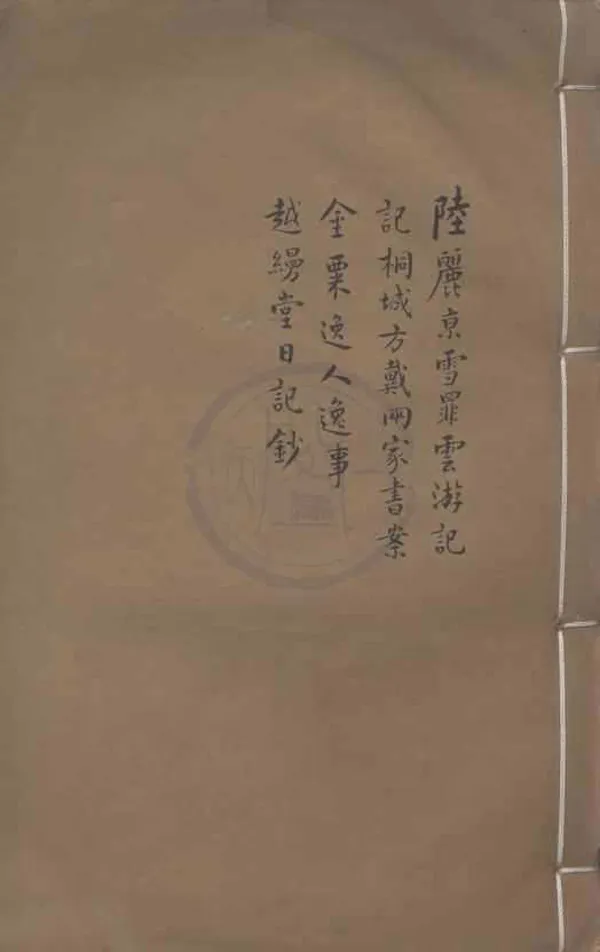 陸麗京雪罪雲游記
記桐城方戴兩家書案
金粟逸人逸事
越縵堂日記鈔